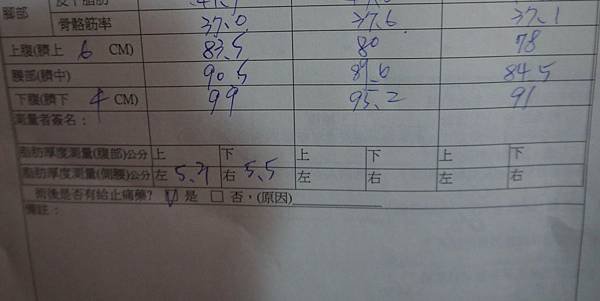 腳部 皮下脂肪
骨骼筋率 37.0 37.6 37.1
上腹(臍上 6 CM) 83.5 80 78
腰部(臍中) 90.5 84.5
下腹(臍下 4 CM) 99 95.2 91
測量者簽名：
脂肪厚度測量(腹部)公分 上 下 上 下 上 下
脂肪厚度測量(側腰)公分 左 右 5.5 左 右 左 右
術後是否有給止痛藥? ☑ 是 □ 否，(原因)
備註：